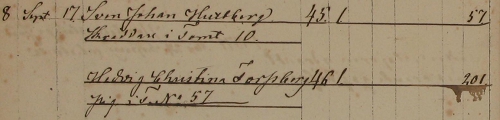 8 Sept. 17 Sven Johan Hultberg 45. 1 57
Skräddare i Tomt 10.
Hedvig Christina Forsberg 46 1. 201
Pig. i T. No. 57